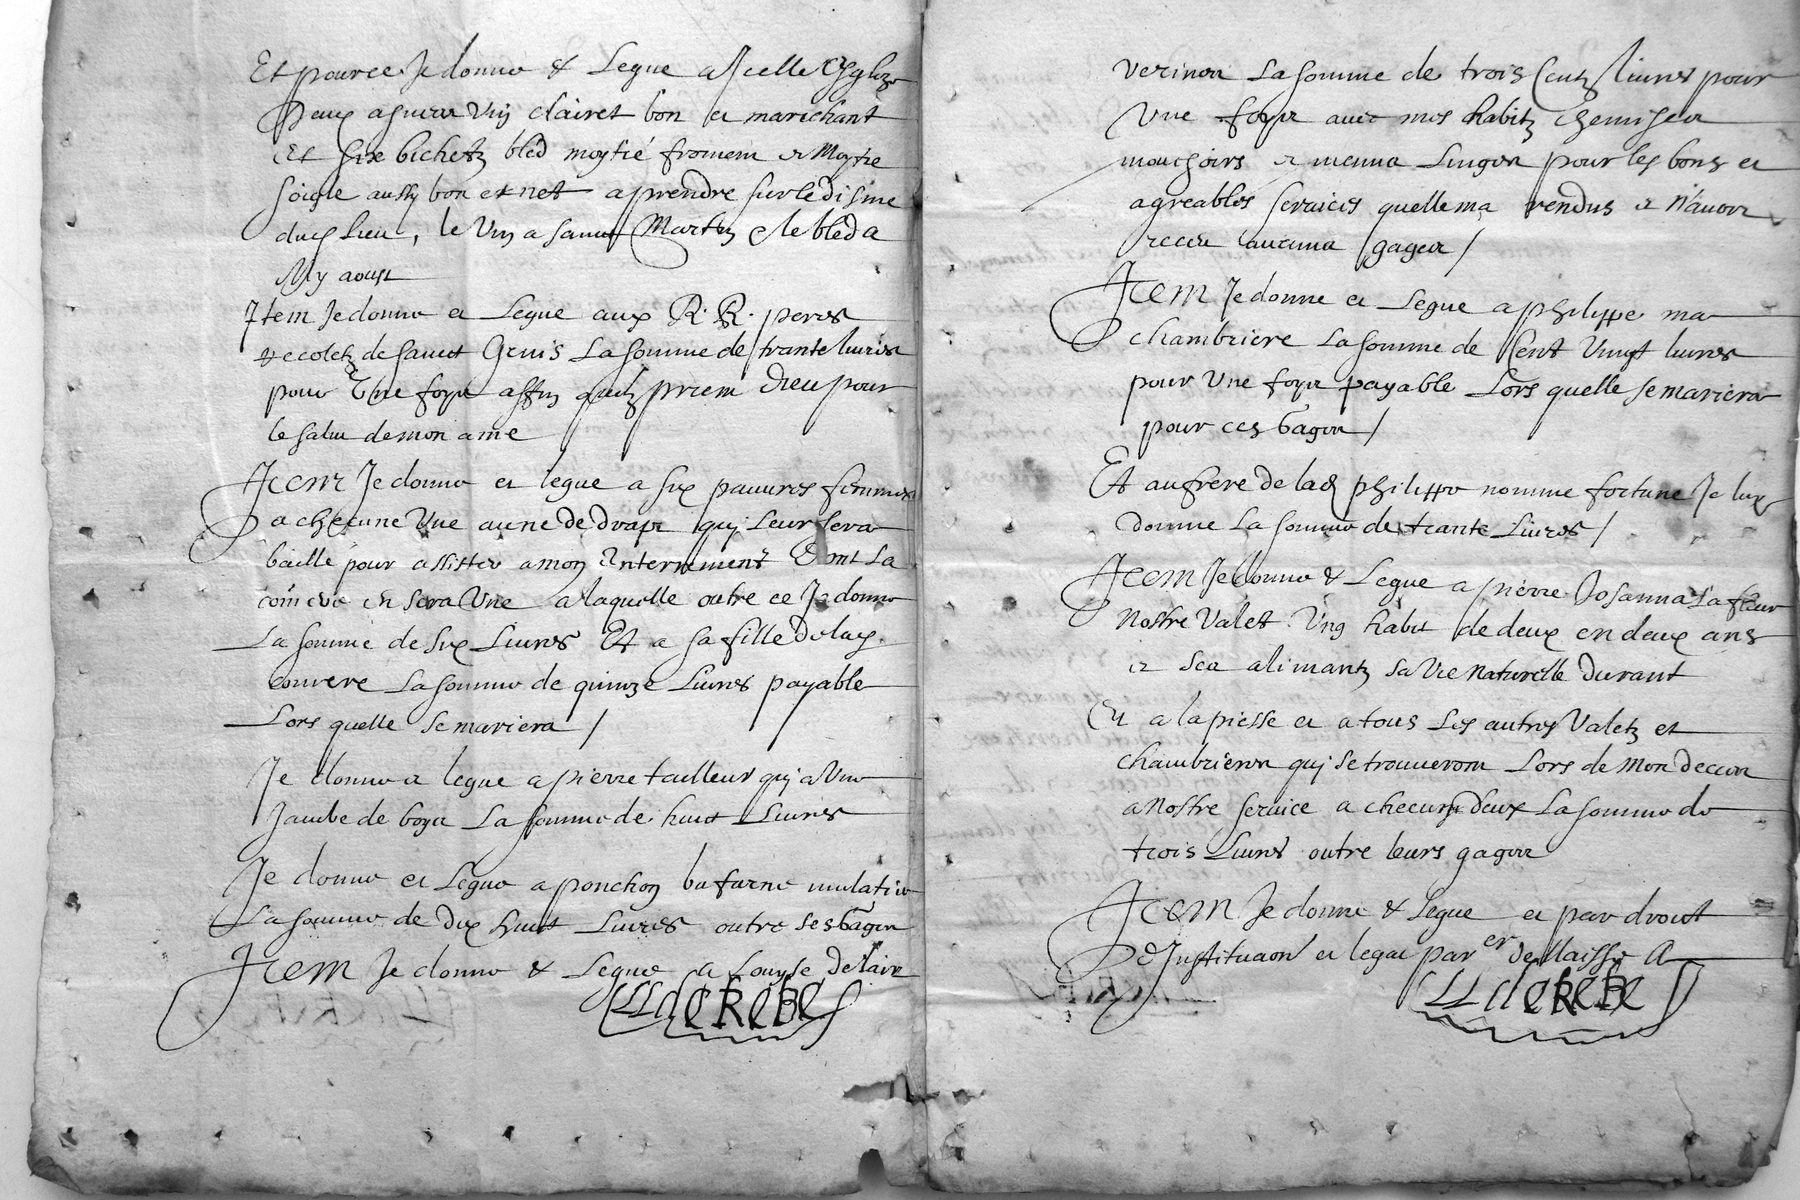 Et pource Je donne & Legue a Jcelle Esglize
Deux asnees Vin clairet bon et marchant
Et six bichetz bled moytié froment et Moytie
soigle aussy bon et net a prendre sur le disme
dud Lieu, le Vin a sainct Martin & le bled a
My aoust
Item Je donne et Legue aux R. R. peres
recoletz de sainct Genis La somme de trante livres
pour Une foys affin quilz prient Dieu pour
le salut de mon ame
Item Je donne et legue a six pauvres femmes
a checune Vne aune de drapt quj Leur sera
baille pour assister a mon Enterrement Dont La
en sera Vne a laquelle outre ce Je donne
La somme de six Livres Et a sa fille
La somme de quinze Livres payable
Lors quelle se mariera /
Je donne et legue a pierre tailleur quj a Vne
Jambe de boys La somme de huict Livres
Je donne et Legue a ponchon
La somme de Dix huict Livres outre ses gages
Item Je donne & Legue a Louyse
LL de REBE
La somme de trois Centz livres pour
Vne foys avec mes habitz chemises
mouchoirs et menus Linges pour les bons et
agreables services quelle ma rendus et n'avoir
receu aucuns gages /
Item Je donne et Legue a philippe ma
chambriere La somme de Cent Vingt livres
pour Vne foys payable Lors quelle se mariera
pour ces Gages /
Et au frere de lad philippe nomme fortune Je luy
donne La somme de trante Livres /
Item Je donne & Legue a pierre La fleur
Nostre Valet Vng habit de deux en deux ans
et ses alimantz sa Vie Naturelle Durant
Et a la piesse et a tous Les autres Valetz et
chambrieres quj se trouveront Lors de Mon deces
a Nostre service a checung d'eux La somme de
trois Livres outre leurs gages
Item Je donne & legue et par droict
d Justitution et legat par er dellaisse A
LL de REBE